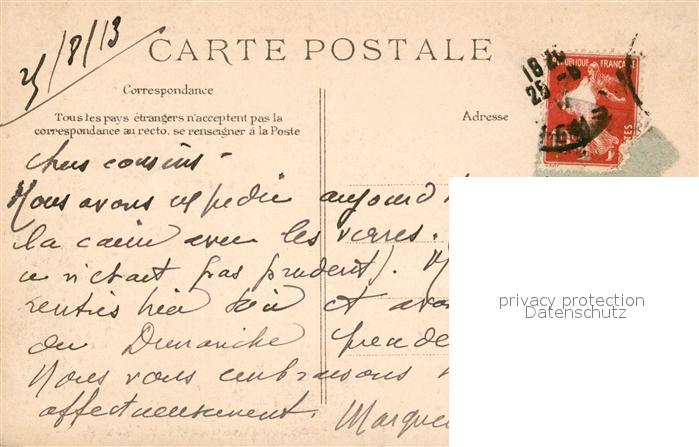 25/8/13
CARTE POSTALE
Correspondance
Tous les pays étrangers n'acceptent pas la
correspondance au recto, se renseigner à la Poste
Adresse
RÉPUBLIQUE FRANÇAISE
POSTES
18
25-8
chers cousins -
Nous avons expédié aujourd
la caisse avec les verres.
ce n'était pas prudent).
rentrés hier soir et
du Dimanche
Nous vous embrassons
affectueusement.
privacy protection
Datenschutz